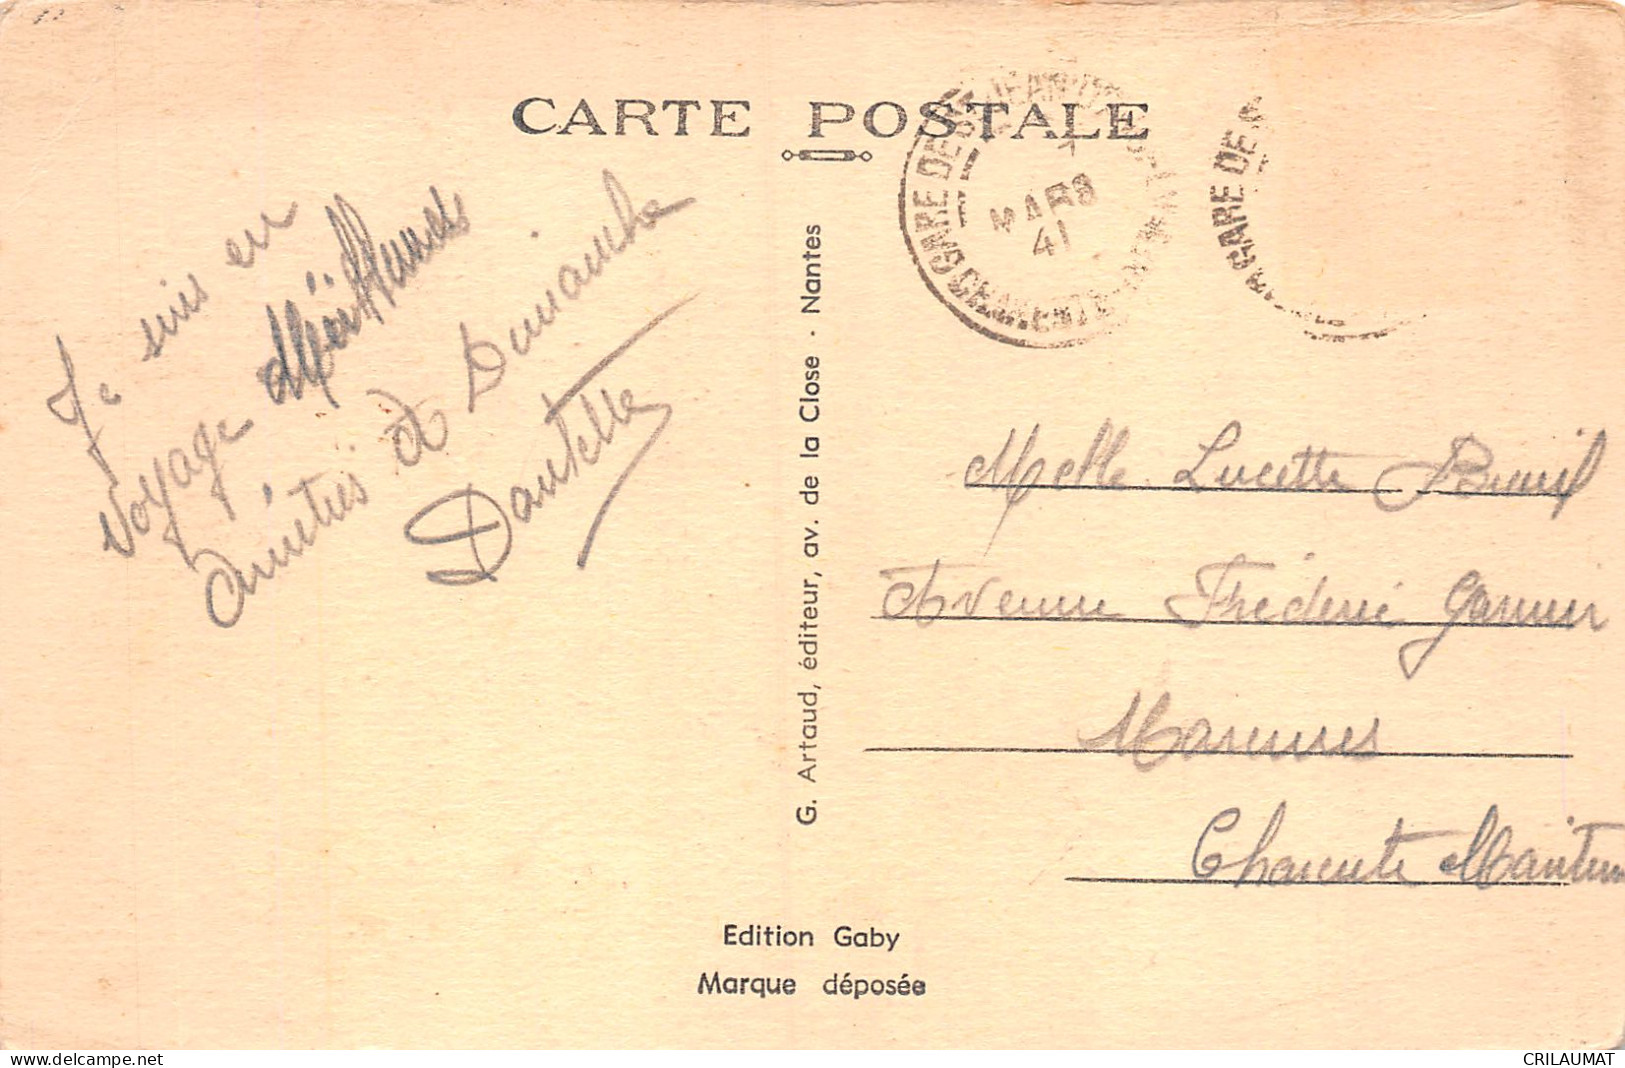 CARTE POSTALE
GARE DE
MARS
41
GARE DE
Je suis en
voyage
Amitiés à Dimanche
G. Artaud, éditeur, av. de la Close - Nantes
Melle Lucette
Avenue Frédéric Garnier
Marennes
Charente Maritime
Edition Gaby
Marque déposée
www.delcampe.net
CRILAUMAT